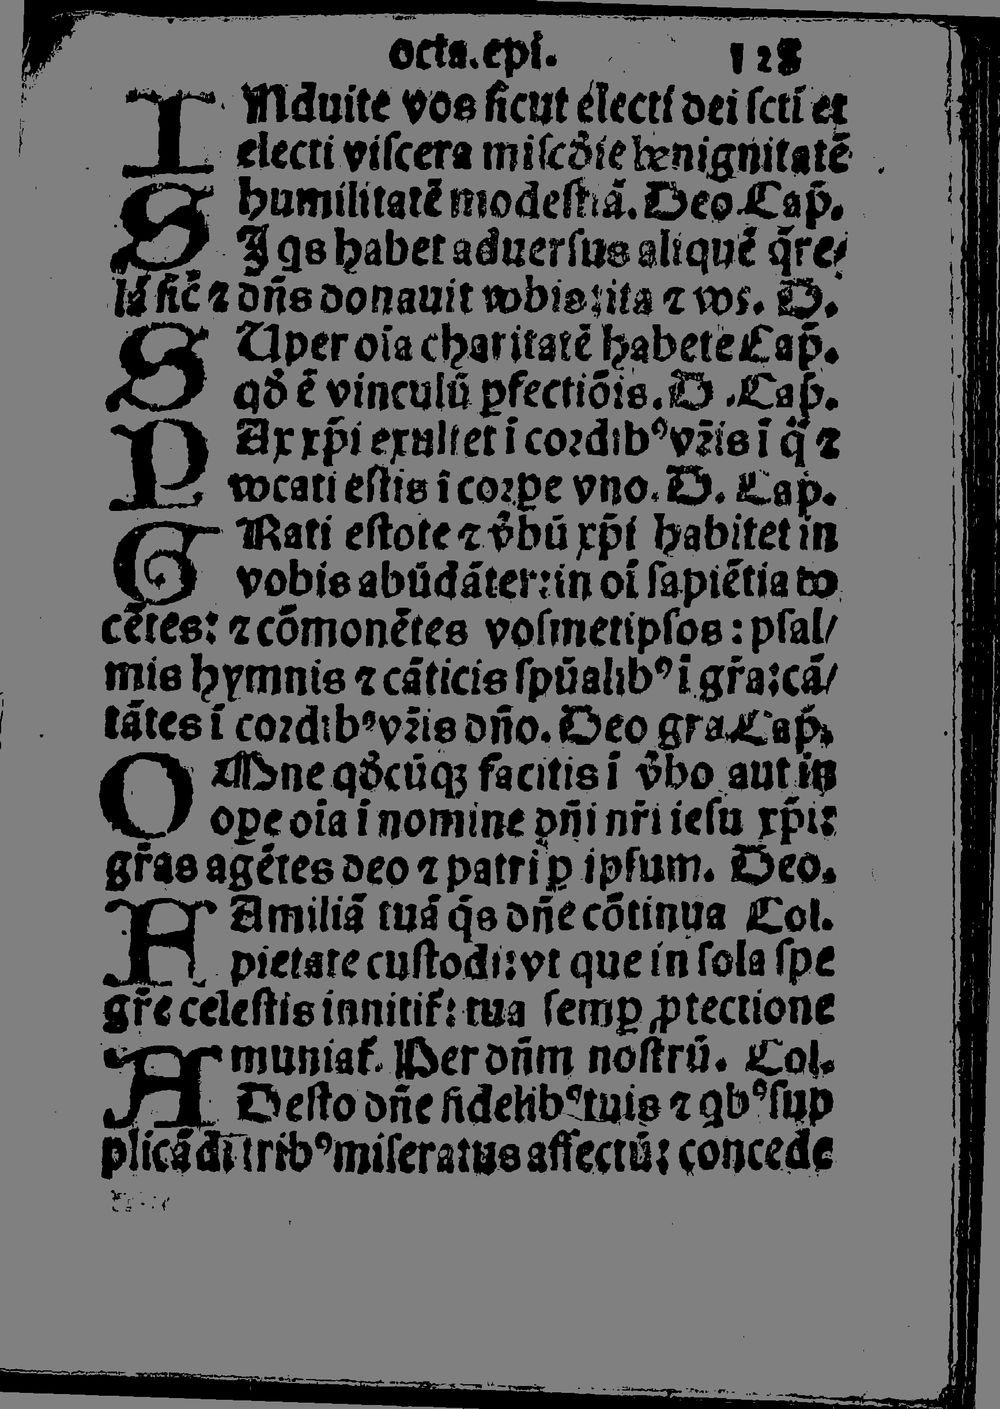 octa.epī. 128
INduite vos sicut electi dei scti et
electi viscera miscđie benignitatē
humilitatē modestiā. Deo Cap̄.
SI qs habet aduersus aliquē q̄re/
lā sic̄ ⁊ dn̄s donauit vobis: ita ⁊ vos. D.
SUper oīa charitatē habete Cap̄.
qđ ē vinculū ꝑfectiōis. D. Cap̄.
PAx xp̄i exultet ī cordibꝰ vr̄is ī q̄ ⁊
vocati estis ī corꝑe vno. D. Cap̄.
GRati estote ⁊ v̄bū xp̄i habitet in
vobis abūdāter: in oī sapiētia do
cētes: ⁊ cōmonētes vosmetipsos: psal/
mis hymnis ⁊ cāticis spūalibꝰ ī gr̄a: cā/
tātes ī cordibꝰ vr̄is dn̄o. Deo gra Cap̄.
OMne qđcūqꝫ facitis ī v̄bo aut in
oꝑe oīa ī nomine dn̄i nr̄i iesu xp̄i:
gr̄as agētes deo ⁊ patri ꝑ ipsum. Deo.
FAmiliā tuā q̄s dn̄e cōtinua Col.
pietate custodi: vt que in sola spe
gr̄e celestis innitit̄: tua semꝑ ꝓtectione
muniat̄. Per dn̄m nostrū. Col.
ADesto dn̄e fidelibꝰ tuis ⁊ qbꝰ sup
plicādi tribꝰ miseratus affectū: concede